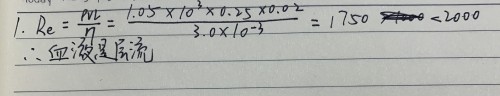 1. Re = ρvL/η = 1.05×10³×0.25×0.02/3.0×10⁻³ = 1750 <2000
∴血液是层流